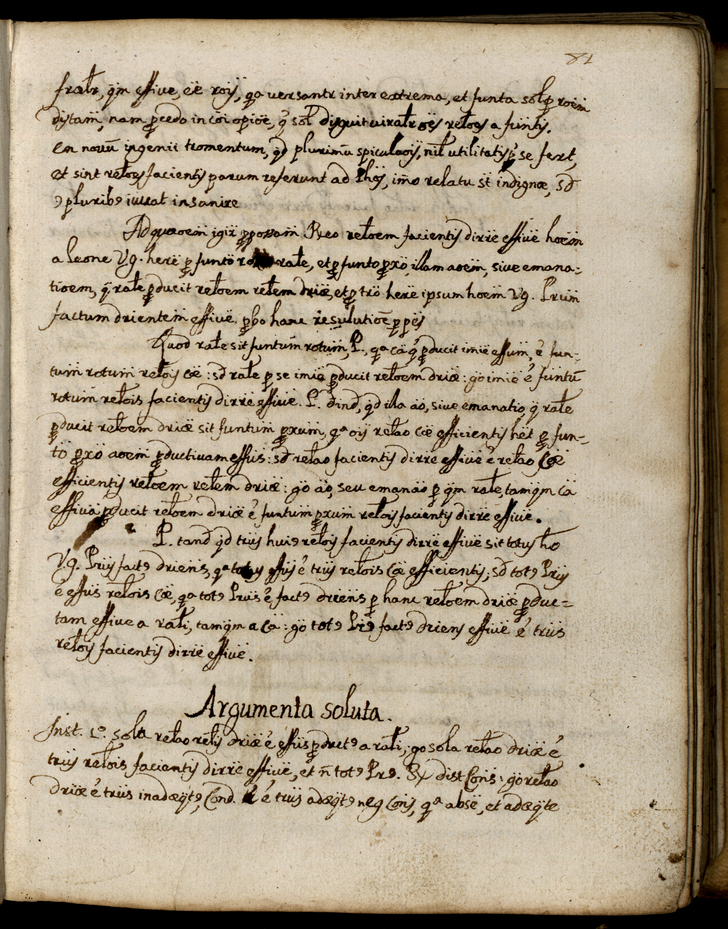 81
fratr, qm effive, ee rois, qa versantr inter extrema, et funta solp roem
distam, nam pcedo in coi opioe, q sol disquituiratr oes retoes a funtis.
En novu ingenii tromentum, qd plurimu spiculaois, nil utilitatis p se fert,
et sint retoes facientis parum referunt ad Phos, imo relatu st indignae, sd
9 pluribs iuvat insanire
Ad quaoem igir ppossam Reo retoem facientis dirre effive hoem
a leone Vg. here p funto rale, et p funto pxo illam aoem, sive emana-
tioem, q rale pducit retoem retem driae, et p tro here ipsum hoem Vg. Prim
factum drientem effive pbo hanc resulutioe p pes
Quod rale sit funtum rotum, P. qa ca q pducit imie effum, e fun-
tum rotum retois cae: sd rale p se imie pducit retoem driae: go imie e funtu
rotum retois facientis dirre effive. P. dind, qd illa ao, sive emanatio q rale
pducit retoem driae sit funtum pxum, qa ois retao cae efficientis het p fun-
to pxo aoem pductivam effus: sd retao facientis dirre effive e retao cae
efficientis retoem retem driae: go ao, seu emanao p qm rale, tamqm ca
effiva pducit retoem driae e funtum pxum retois facientis dirre effive.
P. tand qd trus huis retois facientis dirre effive sit totus ho
Vg. Prus fact9 driens, qa totus effus e trus retois cae efficientis; sd tot9 Prus
e effus retois cae, qa tot9 Prus e fact9 driens p hanc retoem driae pduc-
tam effive a rali, tamqm a ca: go tot9 Pr9 fact9 driens effive e trus
retois facientis dirre effive.
Argumenta soluta.
Inst. 1o. sola retao retis driae e effus pduct9 a rali; go sola retao driae e
trus retois facientis dirre effive, et n tot9 Pr9. Rx dist Cons: go retao
driae e trus inadaeqt9, Cond. e trus adaeqt9 neg Cons, qa abse, et adaeqte